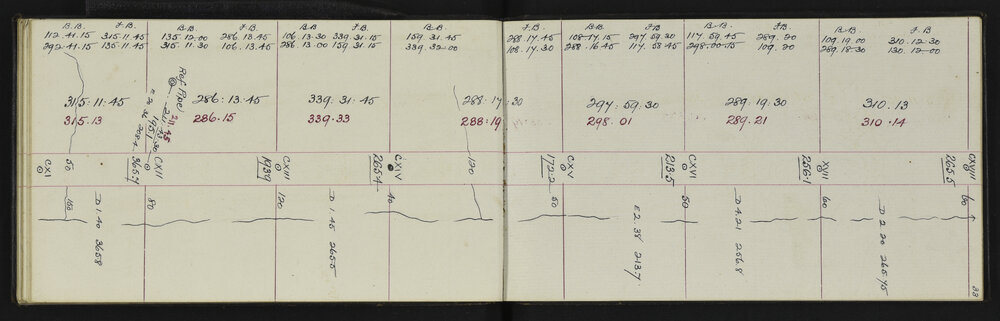 B.B. F.B. B.B. F.B. B.B. F.B. B.B. F.B. B.B. F.B. B.B. F.B. B.B. F.B.
112.41.15 315.11.45 135.12.00 286.13.45 106.13.30 339.31.15 159.31.45 288.17.45 108.17.15 297.59.30 117.59.45 289.20 109.19.00 310.12.30
292.41.15 135.11.45 315.11.30 106.13.45 286.13.00 159.31.15 339.32.00 108.17.30 288.16.45 117.58.45 298.00.15 109.20 289.18.30 130.12.00
315.11.45 286.13.45 339.31.45 288.17.30 297.59.30 289.19.30 310.13
315.13 286.15 339.33 288.19 298.01 289.21 310.14
Ref. Pipe
CXI 50 365.7 CXII 193.9 CXIII 265.4 CXIV 120 172.2 CXV 213.5 CXVI 256.1 XVII 265.5 CXVIII
80 120 40 50 50 60 60
D 1.40 365.8
D 1.45 265.5
E 2.38 213.7
D 4.21 256.8
D 2.20 265.75
88